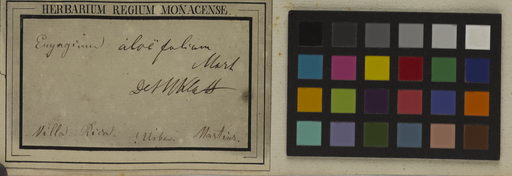 HERBARIUM REGIUM MONACENSE.
Eryngium aloëfolium
Mart
Det Klatt
Villa Rica. Martius.